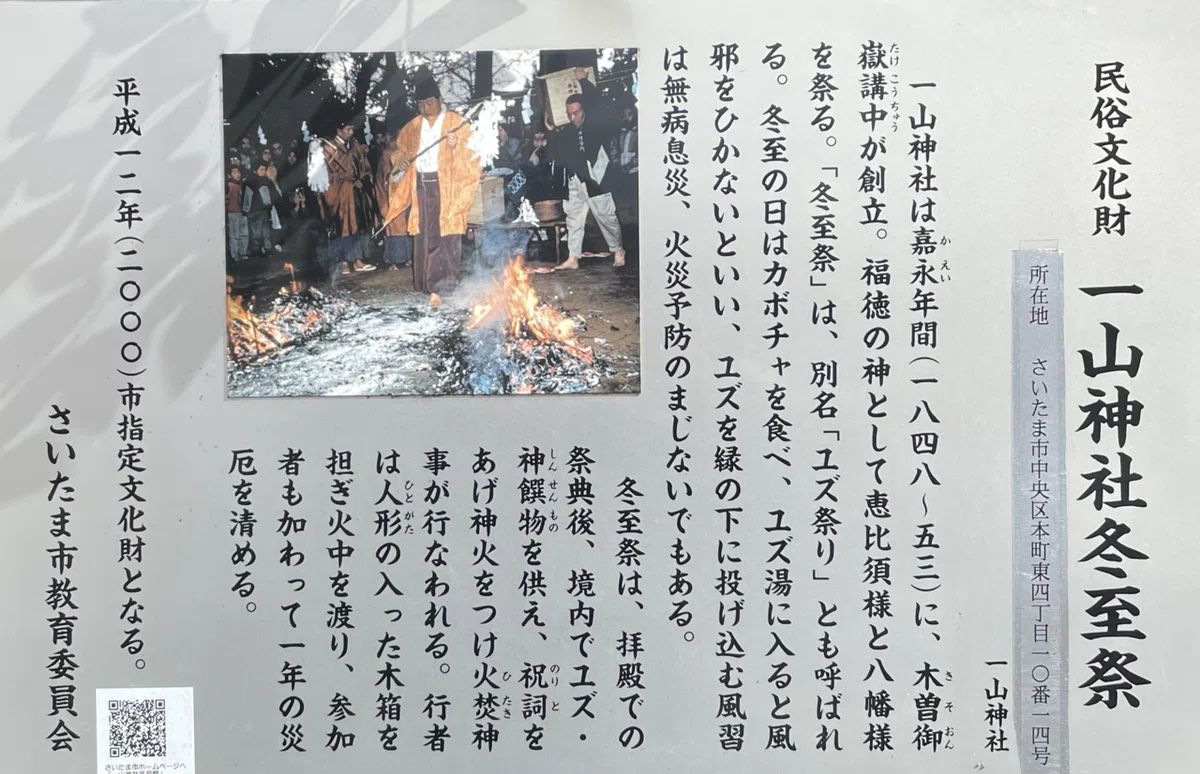 民俗文化財　一山神社冬至祭
所在地　さいたま市中央区本町東四丁目一〇番一四号
一山神社
一山神社は嘉永年間(一八四八～五三)に、木曽御
嶽講中が創立。福徳の神として恵比須様と八幡様
を祭る。「冬至祭」は、別名「ユズ祭り」とも呼ばれ
る。冬至の日はカボチャを食べ、ユズ湯に入ると風
邪をひかないといい、ユズを縁の下に投げ込む風習
は無病息災、火災予防のまじないでもある。
冬至祭は、拝殿での
祭典後、境内でユズ・
神饌物を供え、祝詞を
あげ神火をつけ火焚神
事が行なわれる。行者
は人形の入った木箱を
担ぎ火中を渡り、参加
者も加わって一年の災
厄を清める。
平成一二年(二〇〇〇)市指定文化財となる。
さいたま市教育委員会
さいたま市ホームページへ